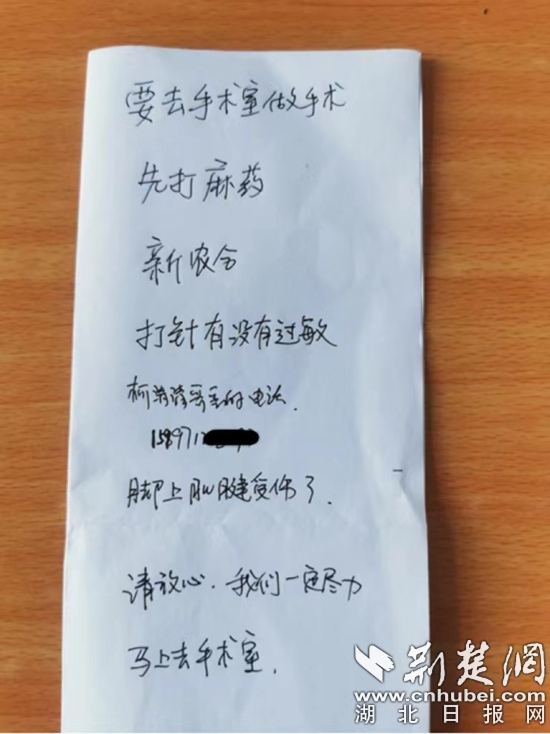 要去手术室做手术
先打麻药
新农合
打针有没有过敏
柯 哥哥的电话.
158971
脚上肌腱受伤了.
请放心.我们一定尽力
马上去手术室.
荆楚網
www.cnhubei.com
湖北日报网